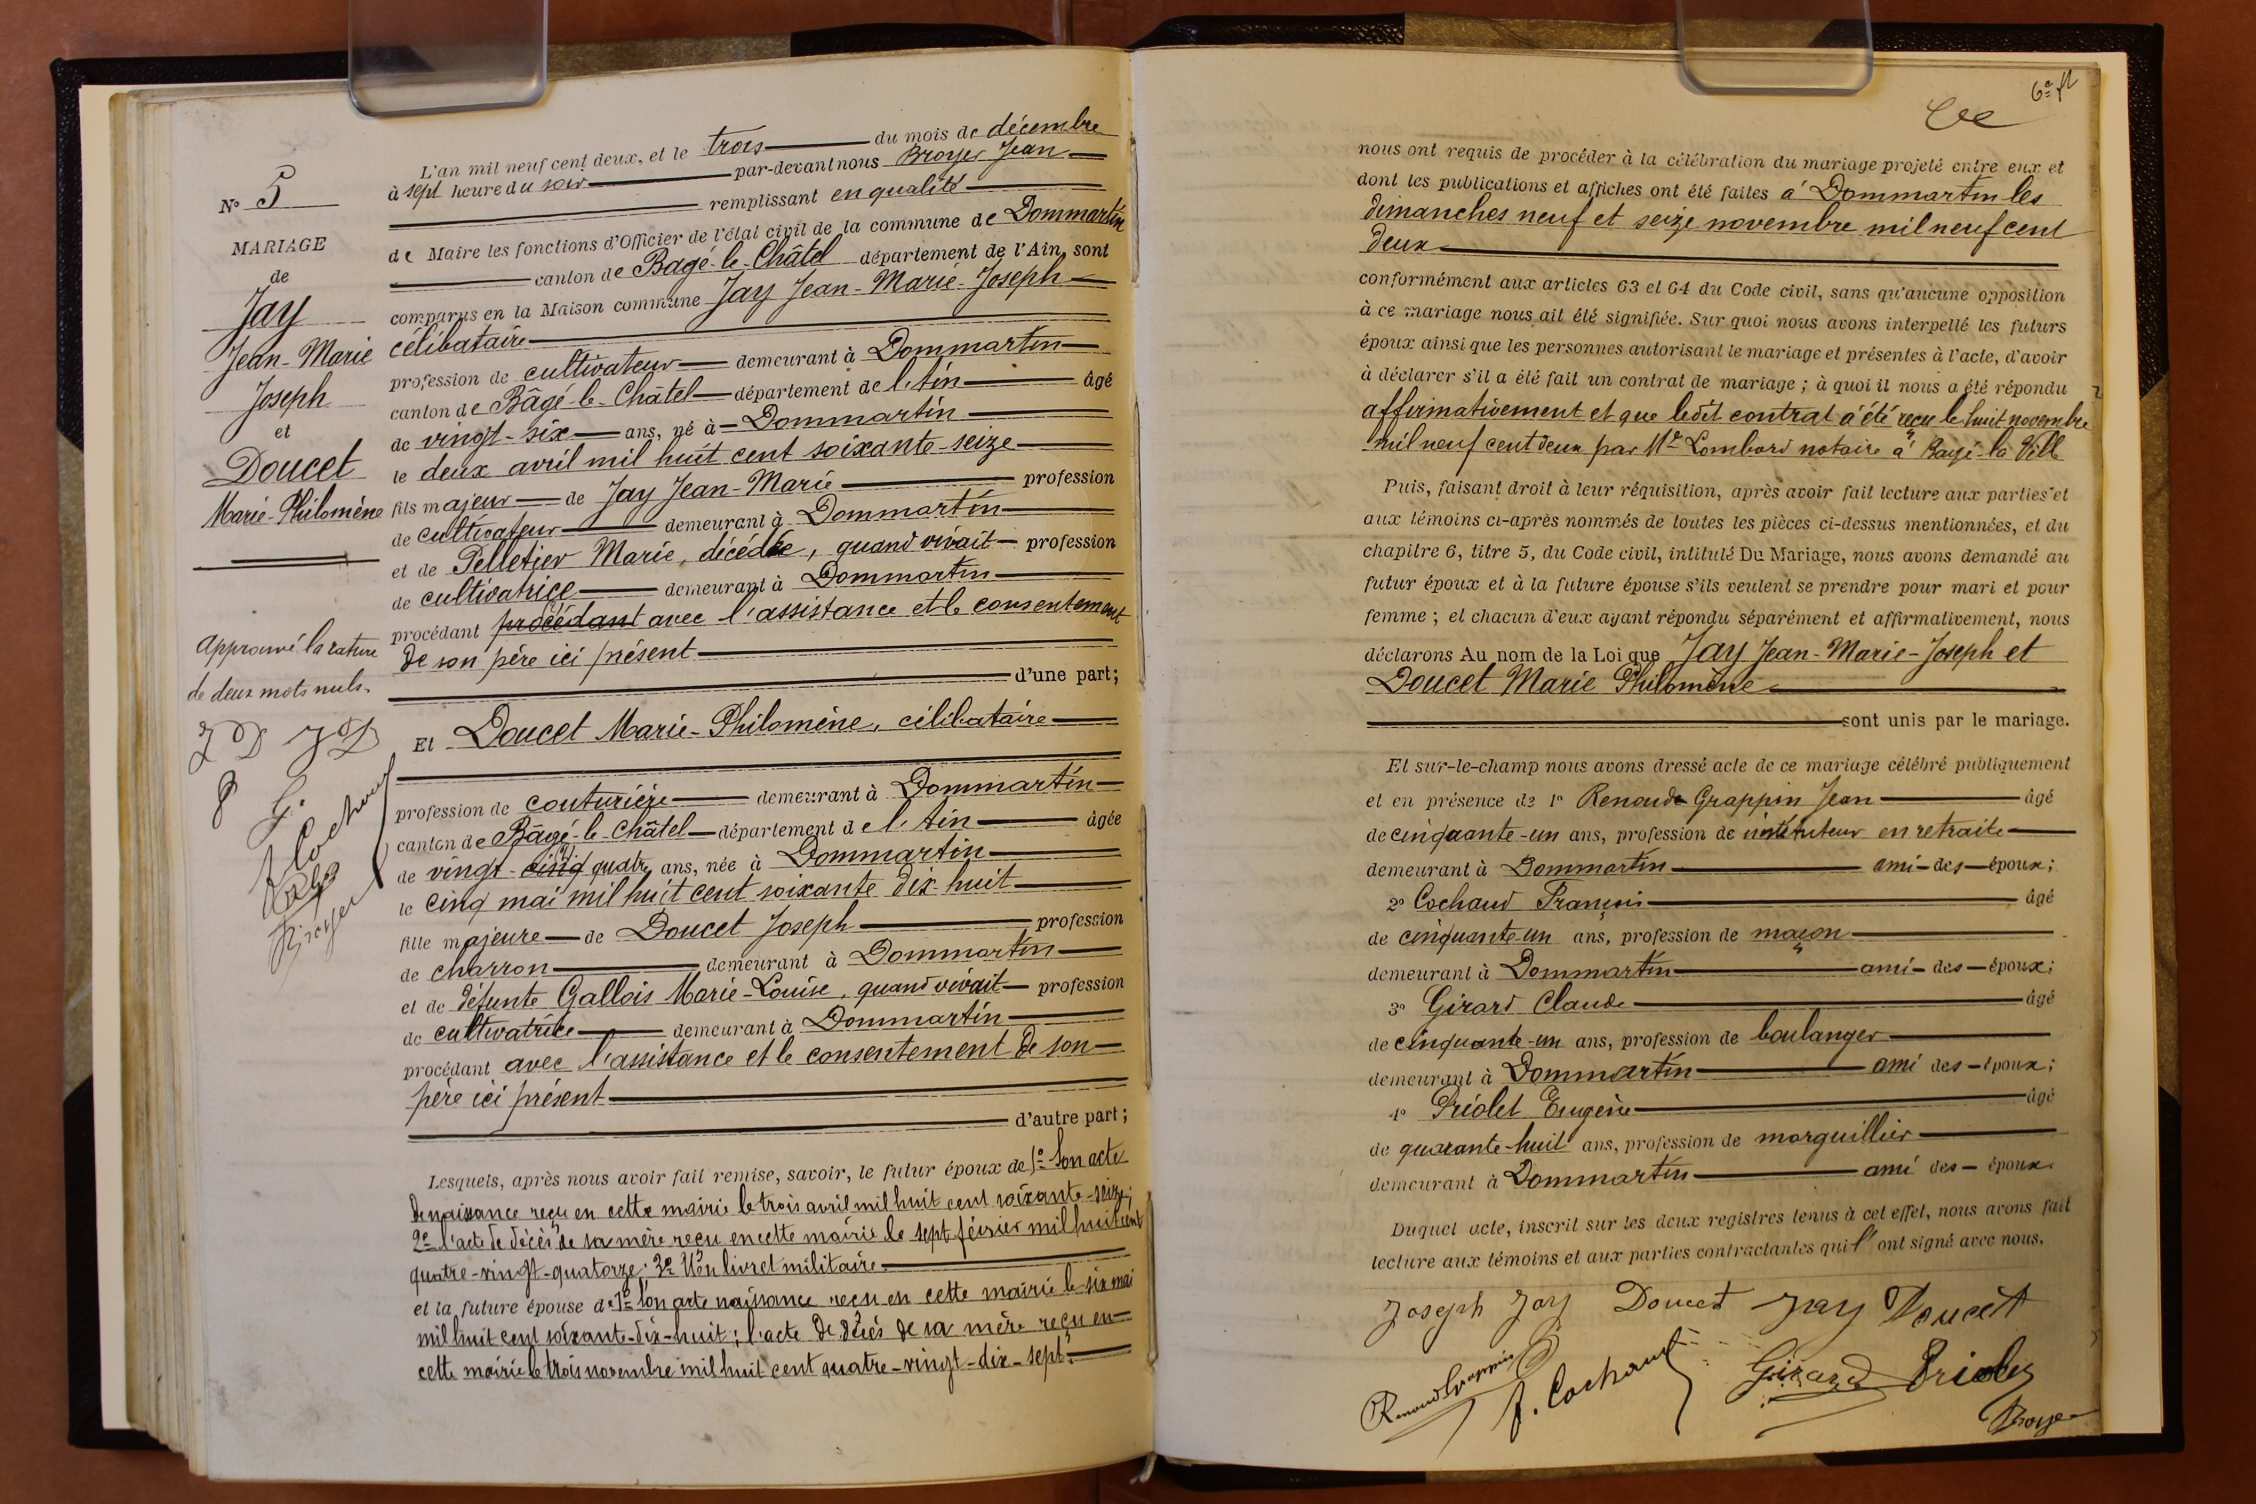 N° 5
MARIAGE
de
Jay
Jean-Marie
Joseph
et
Doucet
Marie-Philomène
Approuvé la rature
de deux mots nuls.
J D J D
P G.
f Cochaud
Broyer
L'an mil neuf cent deux, et le trois du mois de décembre
à sept heure du soir par-devant nous Broyer Jean
remplissant en qualité
de Maire les fonctions d'Officier de l'état civil de la commune de Dommartin
canton de Bagé-le-Châtel département de l'Ain, sont
comparus en la Maison commune Jay Jean-Marie-Joseph
célibataire
profession de cultivateur demeurant à Dommartin
canton de Bâgé-le-Châtel département de l'Ain âgé
de vingt-six ans, né à Dommartin
le deux avril mil huit cent soixante-seize
fils majeur de Jay Jean-Marie profession
de cultivateur demeurant à Dommartin
et de Pelletier Marie, décédée, quand vivait profession
de cultivatrice demeurant à Dommartin
procédant procédant avec l'assistance et le consentement
de son père ici présent
d'une part;
Et Doucet Marie-Philomène, célibataire
profession de couturière demeurant à Dommartin
canton de Bâgé-le-Châtel département de l'Ain âgée
de vingt-cinq quatre ans, née à Dommartin
le cinq mai mil huit cent soixante dix-huit
fille majeure de Doucet Joseph profession
de charron demeurant à Dommartin
et de défunte Gallois Marie-Louise, quand vivait profession
de cultivatrice demeurant à Dommartin
procédant avec l'assistance et le consentement de son
père ici présent
d'autre part;
Lesquels, après nous avoir fait remise, savoir, le futur époux de 1° Son acte
de naissance reçu en cette mairie le trois avril mil huit cent soixante-seize;
2° l'acte de décès de sa mère reçu en cette mairie le sept février mil huit cent
quatre-vingt-quatorze; 3° Un livret militaire
et la future épouse de 1° Son acte naissance reçu en cette mairie le six mai
mil huit cent soixante-dix-huit; l'acte de décès de sa mère reçu en
cette mairie le trois novembre mil huit cent quatre-vingt-dix-sept.
6e ft
nous ont requis de procéder à la célébration du mariage projeté entre eux et
dont les publications et affiches ont été faites à Dommartin les
dimanches neuf et seize novembre mil neuf cent
deux
conformément aux articles 63 et 64 du Code civil, sans qu'aucune opposition
à ce mariage nous ait été signifiée. Sur quoi nous avons interpellé les futurs
époux ainsi que les personnes autorisant le mariage et présentes à l'acte, d'avoir
à déclarer s'il a été fait un contrat de mariage; à quoi il nous a été répondu
affirmativement et que ledit contrat a été reçu le huit novembre
mil neuf cent deux par Me Lombard notaire à Bagé-la-Ville
Puis, faisant droit à leur réquisition, après avoir fait lecture aux parties et
aux témoins ci-après nommés de toutes les pièces ci-dessus mentionnées, et du
chapitre 6, titre 5, du Code civil, intitulé Du Mariage, nous avons demandé au
futur époux et à la future épouse s'ils veulent se prendre pour mari et pour
femme; et chacun d'eux ayant répondu séparément et affirmativement, nous
déclarons Au nom de la Loi que Jay Jean-Marie-Joseph et
Doucet Marie Philomène
sont unis par le mariage.
Et sur-le-champ nous avons dressé acte de ce mariage célébré publiquement
et en présence de 1° Renoud-Grappin Jean âgé
de cinquante-un ans, profession de instituteur en retraite
demeurant à Dommartin ami des époux;
2° Cochaud François âgé
de cinquante-un ans, profession de maçon
demeurant à Dommartin ami des époux;
3° Girard Claude âgé
de cinquante-un ans, profession de boulanger
demeurant à Dommartin ami des époux;
4° Priolet Eugène âgé
de quarante-huit ans, profession de marguillier
demeurant à Dommartin ami des époux.
Duquel acte, inscrit sur les deux registres tenus à cet effet, nous avons fait
lecture aux témoins et aux parties contractantes qui l'ont signé avec nous.
Joseph Jay Doucet Jay Doucet
Renoud Grappin f. Cochaud Girard Priolet
Broyer